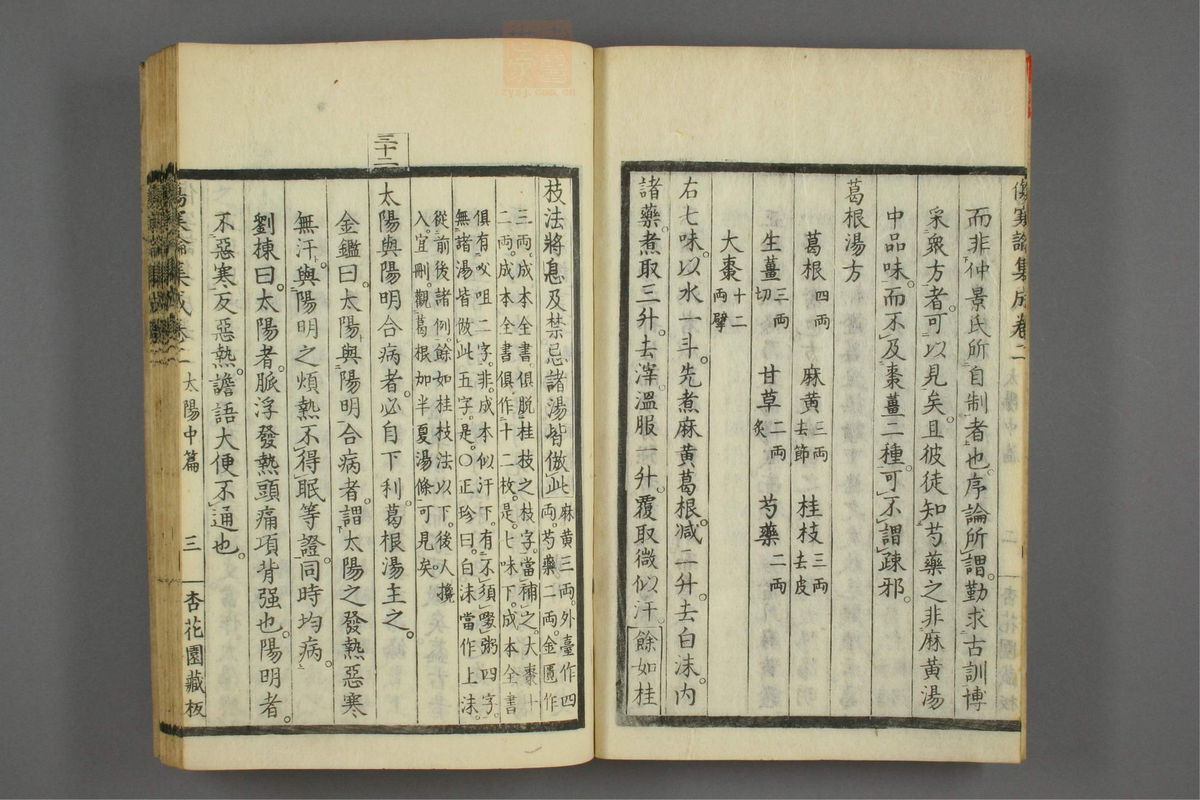 傷寒論集成卷二
而非仲景氏所自制者也。序論所謂。勤求古訓博
采衆方者。可以見矣。且彼徒知芍藥之非麻黄湯
中品味。而不及棗薑二種。可不謂疎邪。
葛根湯方
葛根四両 麻黄三両去節 桂枝三両去皮
生薑三両切 甘草二両炙 芍藥二両
大棗十二両擘
右七味。以水一斗。先煮麻黄葛根。减二升。去白沫。内
諸藥。煮取三升。去滓。溫服一升。覆取微似汗。餘如桂
枝法將息及禁忌諸湯皆倣此
麻黄三両。外臺作四
両。芍藥二両。金匱作
三両。成本全書俱脫桂枝之枝字。當補之。大棗十
二両。成本全書俱作十二枚。是。七味下。成本全書
俱有㕮咀二字。非。成本似汗下。有不須啜粥四字。
無諸湯皆倣此五字。是。〇正珍曰。白沫當作上沫。
從前後諸例。餘如桂枝法以下。後人攙
入。宜刪。觀葛根加半夏湯條可見矣。
三十二
太陽與陽明合病者。必自下利。葛根湯主之。
金鑑曰。太陽與陽明合病者。謂太陽之發熱惡寒
無汗。與陽明之煩熱不得眠等證。同時均病。
劉棟曰。太陽者。脈浮發熱頭痛項背强也。陽明者。
不惡寒反惡熱。譫語大便不通也。
傷寒論集成卷二 太陽中篇 三 杏花園藏板